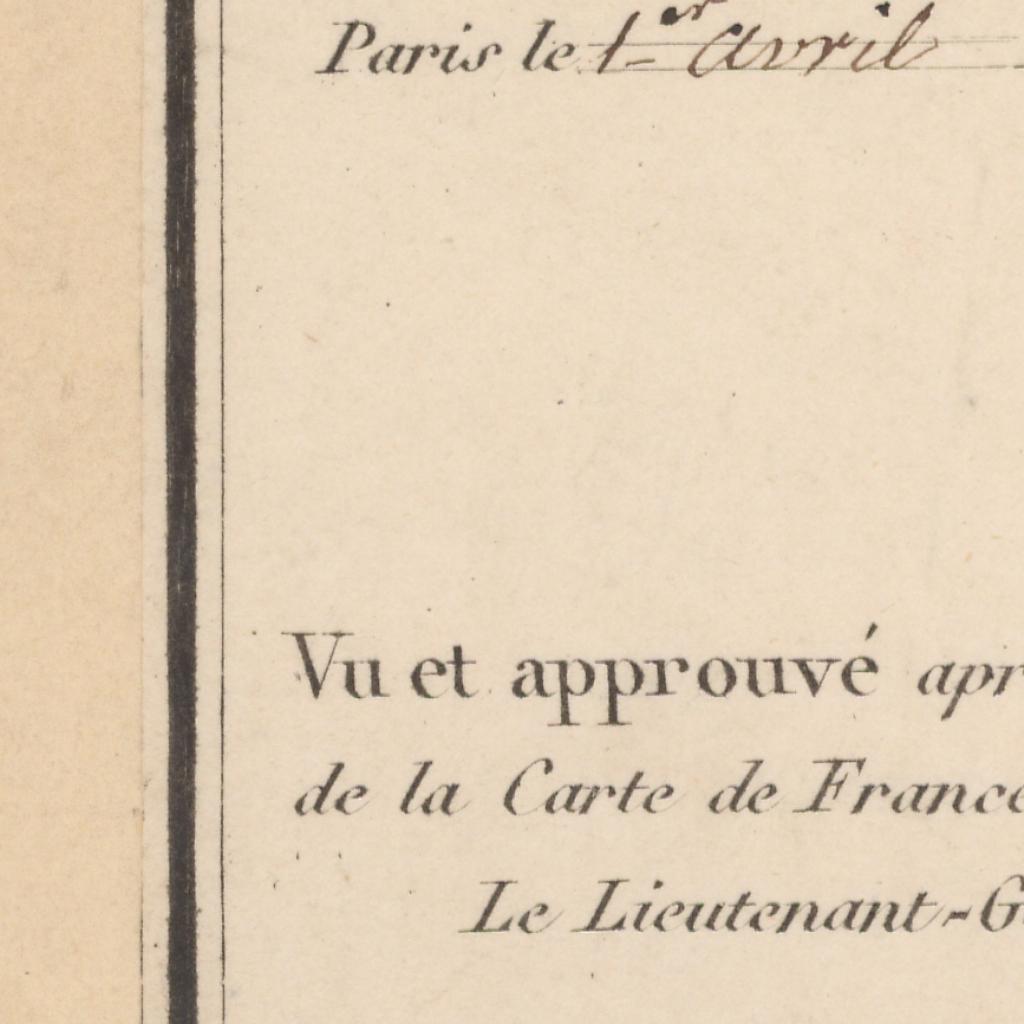 Paris le 1er avril
Vu et approuvé apr
de la Carte de France
Le Lieutenant-G